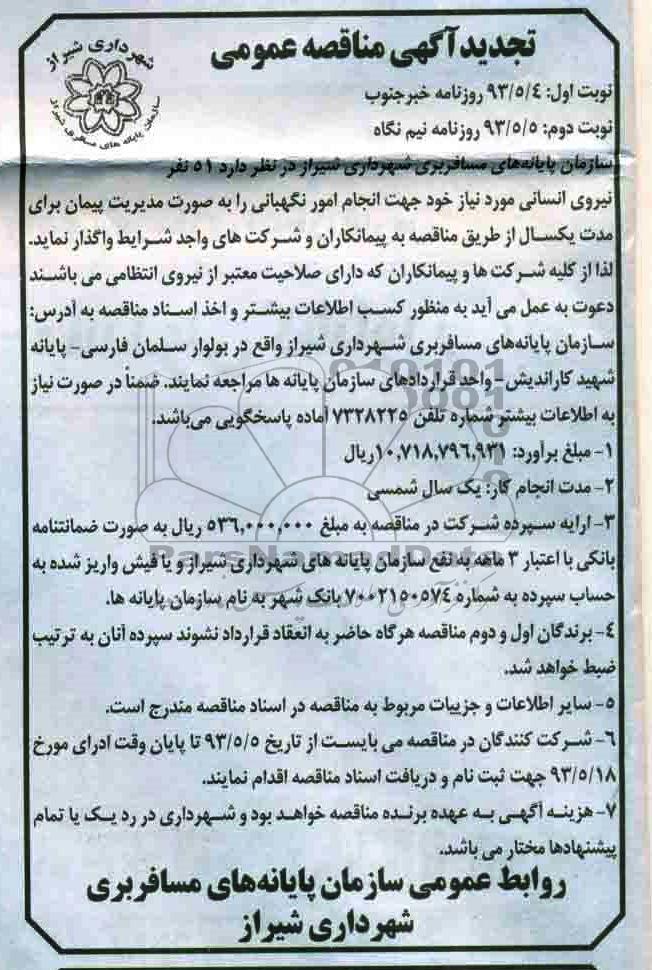 تجدید آگهی مناقصه عمومی
شهرداری شیراز
سازمان پایانه های مسافربری شیراز
نوبت اول: ۹۳/۵/٤ روزنامه خبرجنوب
نوبت دوم: ۹۳/۵/۵ روزنامه نیم نگاه
سازمان پایانه‌های مسافربری شهرداری شیراز در نظر دارد ۵۱ نفر
نیروی انسانی مورد نیاز خود جهت انجام امور نگهبانی را به صورت مدیریت پیمان برای
مدت یکسال از طریق مناقصه به پیمانکاران و شرکت های واجد شرایط واگذار نماید.
لذا از کلیه شرکت ها و پیمانکاران که دارای صلاحیت معتبر از نیروی انتظامی می باشند
دعوت به عمل می آید به منظور کسب اطلاعات بیشتر و اخذ اسناد مناقصه به آدرس:
سازمان پایانه‌های مسافربری شهرداری شیراز واقع در بولوار سلمان فارسی- پایانه
شهید کاراندیش-واحد قراردادهای سازمان پایانه ها مراجعه نمایند. ضمناً در صورت نیاز
به اطلاعات بیشتر شماره تلفن ۷۳۲۸۲۲۵ آماده پاسخگویی می‌باشد.
۱- مبلغ برآورد: ۱۰,۷۱۸,۷۹٦,۹۳۱ریال
۲- مدت انجام کار: یک سال شمسی
۳- ارایه سپرده شرکت در مناقصه به مبلغ ۵۳٦,۰۰۰,۰۰۰ ریال به صورت ضمانتنامه
ParsNamadData
بانکی با اعتبار ۳ ماهه به نفع سازمان پایانه های شهرداری شیراز و یا فیش واریز شده به
حساب سپرده به شماره ۷۰۰۲۱۵۰۵۷٤ بانک شهر به نام سازمان پایانه ها.
٤- برندگان اول و دوم مناقصه هرگاه حاضر به انعقاد قرارداد نشوند سپرده آنان به ترتیب
ضبط خواهد شد.
۵- سایر اطلاعات و جزییات مربوط به مناقصه در اسناد مناقصه مندرج است.
٦- شرکت کنندگان در مناقصه می بایست از تاریخ ۹۳/۵/۵ تا پایان وقت ادرای مورخ
۹۳/۵/۱۸ جهت ثبت نام و دریافت اسناد مناقصه اقدام نمایند.
۷- هزینه آگهی به عهده برنده مناقصه خواهد بود و شهرداری در رد یک یا تمام
پیشنهادها مختار می باشد.
روابط عمومی سازمان پایانه‌های مسافربری
شهرداری شیراز